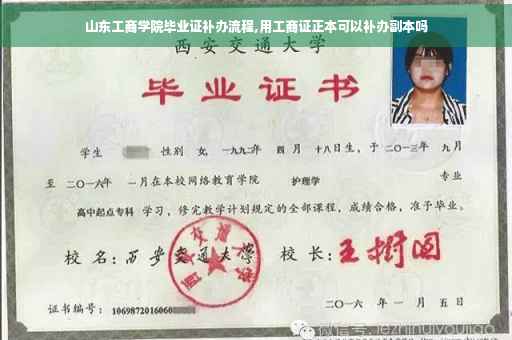 山东工商学院毕业证补办流程,用工商证正本可以补办副本吗
西安交通大学
毕业证书
学生 性别 女, 一九九二年 四月 十八日生, 于 二〇一三年 九月
至 二〇一六年 一月在本校网络教育学院 护理学 专业
高中起点专科 学习, 修完教学计划规定的全部课程, 成绩合格, 准予毕业。
校名: 西安交通大学 校长: 王树国
西安交通大学
证书编号: 1069872016060
二〇一六 年 一 月 五 日
微信号: jezhihuiyoujiao